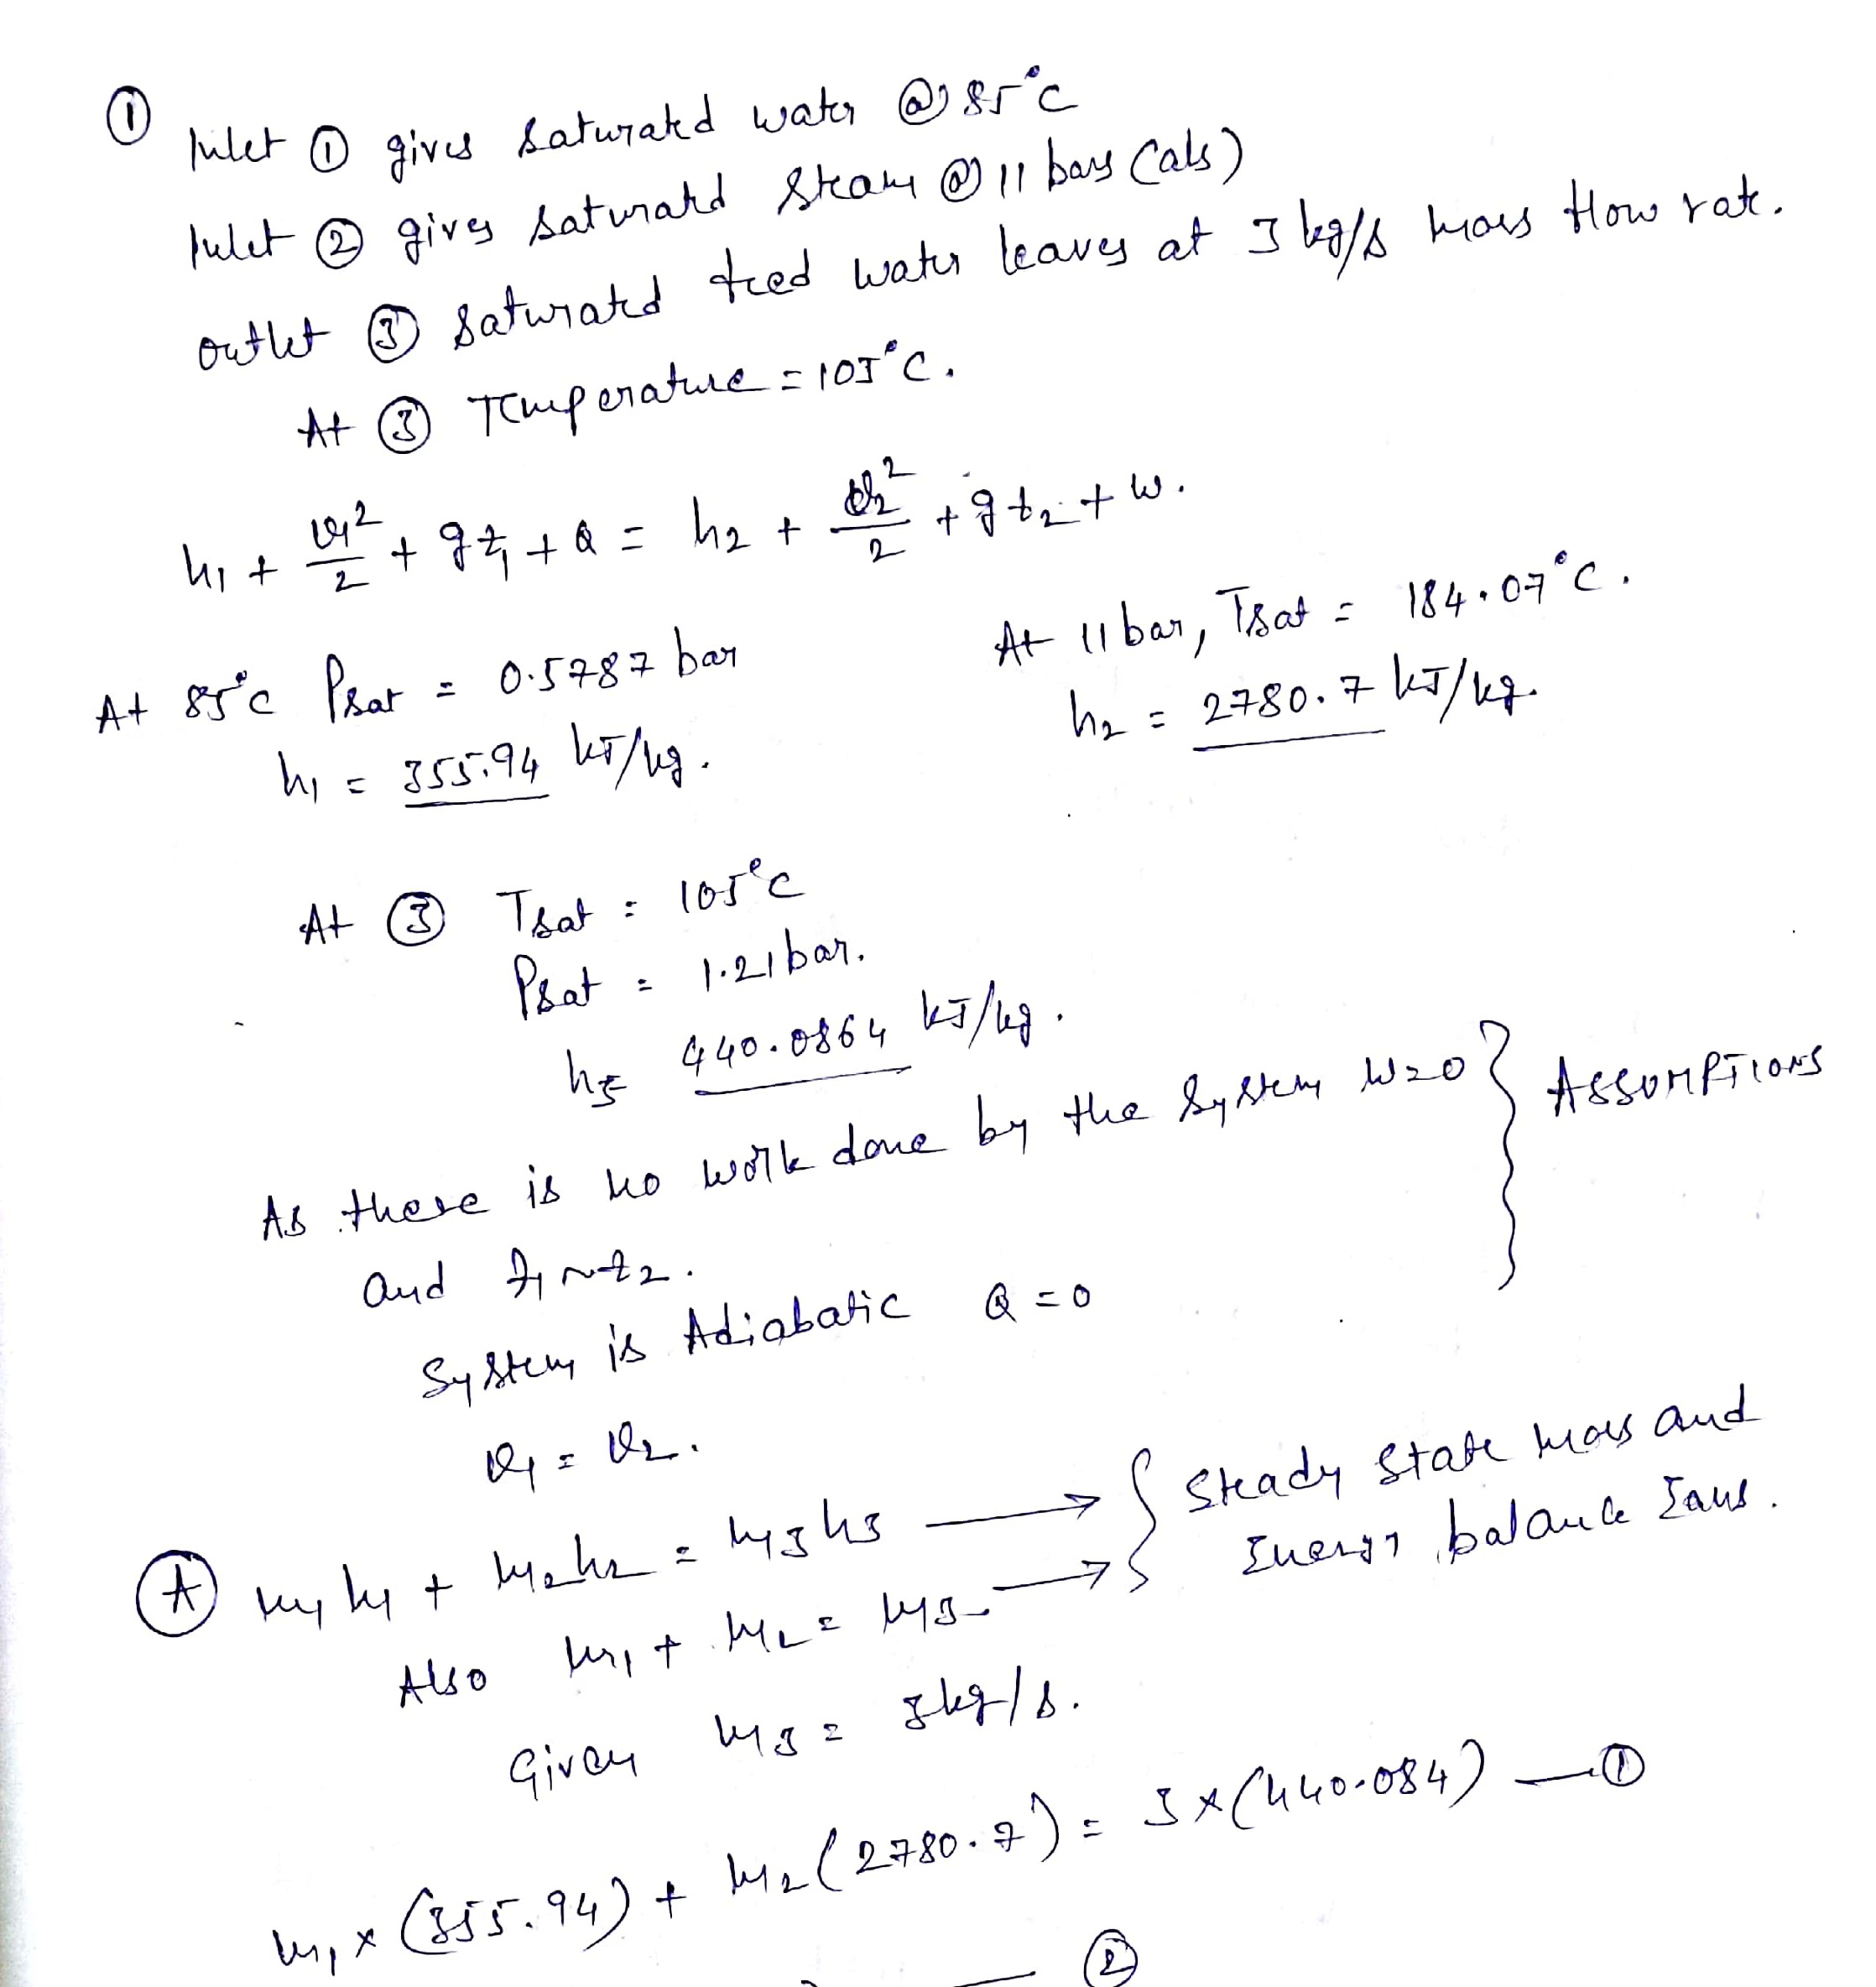 ① Inlet ① gives saturated water @ 85°C
Inlet ② gives saturated steam @ 11 bars (abs)
outlet ③ saturated feed water leaves at 3 kg/s mass flow rate.
At ③ Temperature = 105°C.
h₁ + v₁²/2 + gz₁ + Q = h₂ + v₂²/2 + gz₂ + W.
At 85°C Psat = 0.5787 bar
h₁ = 355.94 kJ/kg.
At 11 bar, Tsat = 184.07°C.
h₂ = 2780.7 kJ/kg.
At ③ Tsat = 105°C
Psat = 1.21 bar.
h₃ = 440.0864 kJ/kg.
As there is no work done by the system W=0
and z₁ ~ z₂.
System is Adiabatic Q = 0
v₁ = v₂.
} ASSUMPTIONS
Ⓐ m₁h₁ + m₂h₂ = m₃h₃ →
Also m₁ + m₂ = m₃ →
{ Steady State mass and
Energy balance Eqns.
Given m₃ = 3kg/s.
m₁ × (355.94) + m₂ (2780.7) = 3 × (440.084) — ①
— ②